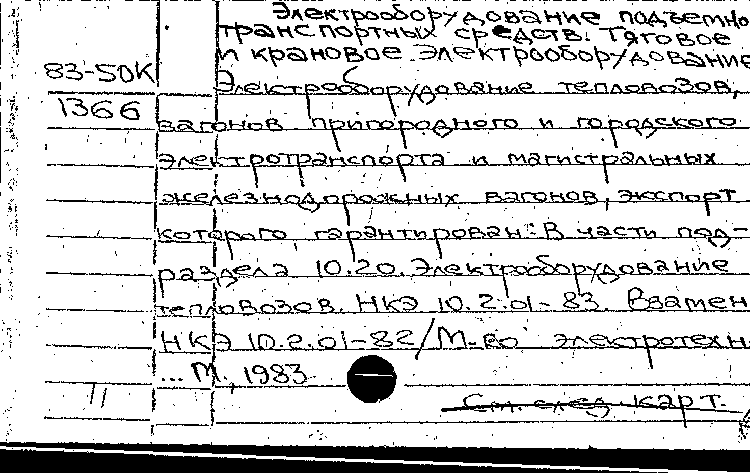 Электрооборудование подъемно
транспортных средств. Тяговое
и крановое электрооборудование
83-50К
Электрооборудование тепловозов,
1366
вагонов пригородного и городского
электротранспорта и магистральных
железнодорожных вагонов, экспорт
которого гарантирован: В части под-
раздела 10.20. Электрооборудование
тепловозов. НКЭ 10.2.01-83. Взамен
НКЭ 10.2.01-82/М-во электротехн.
... М., 1983
См. след. карт.